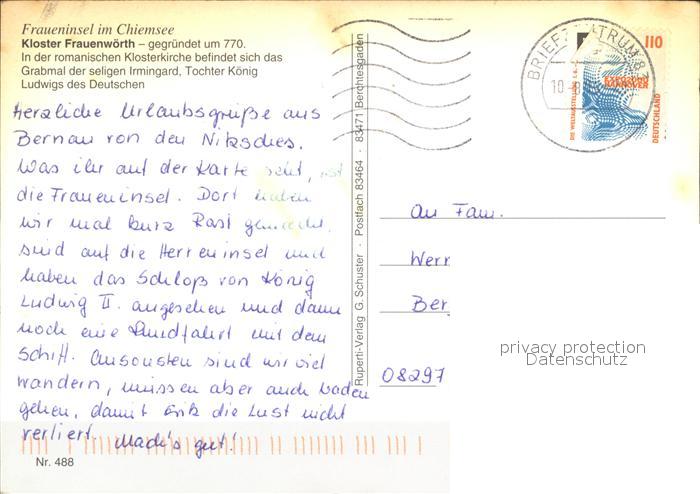 Fraueninsel im Chiemsee
Kloster Frauenwörth – gegründet um 770.
In der romanischen Klosterkirche befindet sich das
Grabmal der seligen Irmingard, Tochter König
Ludwigs des Deutschen
Herzliche Urlaubsgrüße aus
Bernau von den Nitzsches.
Was ihr auf der Karte seht, ist
die Fraueninsel. Dort haben
wir mal kurz Rast gemacht,
sind auf die Herreninsel und
haben das Schloß von König
Ludwig II. angesehen und dann
noch eine Rundfahrt mit dem
Schiff. Ansonsten sind wir viel
wandern, müssen aber auch baden
gehen, damit Erik die Lust nicht
verliert. Macht's gut!
Nr. 488
Ruperti-Verlag G. Schuster · Postfach 83464 · 83471 Berchtesgaden
BRIEFZENTRUM 83
10-8
110
DIE WELTAUSSTELLUNG
EXPO 2000
HANNOVER
DEUTSCHLAND
An Fam.
Werr
Ber
08297
privacy protection
Datenschutz